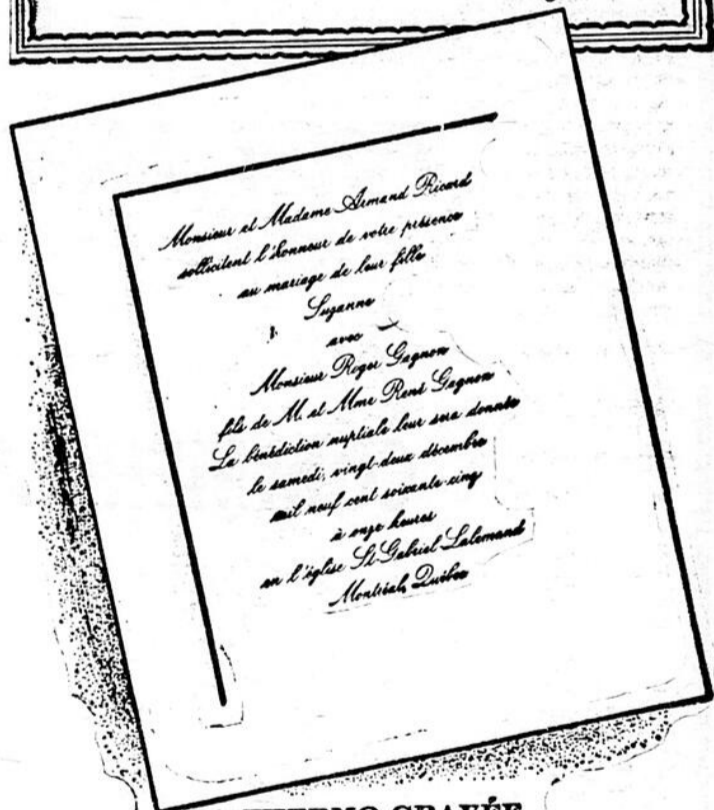 Monsieur et Madame Armand Ricard
sollicitent l'honneur de votre présence
au mariage de leur fille
Suzanne
avec
Monsieur Roger Gagnon
fils de M. et Mme René Gagnon
La bénédiction nuptiale leur sera donnée
le samedi, vingt-deux décembre
mil neuf cent soixante-cinq
à onze heures
en l'église St-Gabriel Lalemand
Montréal, Québec
THERMO-GRAVÉE